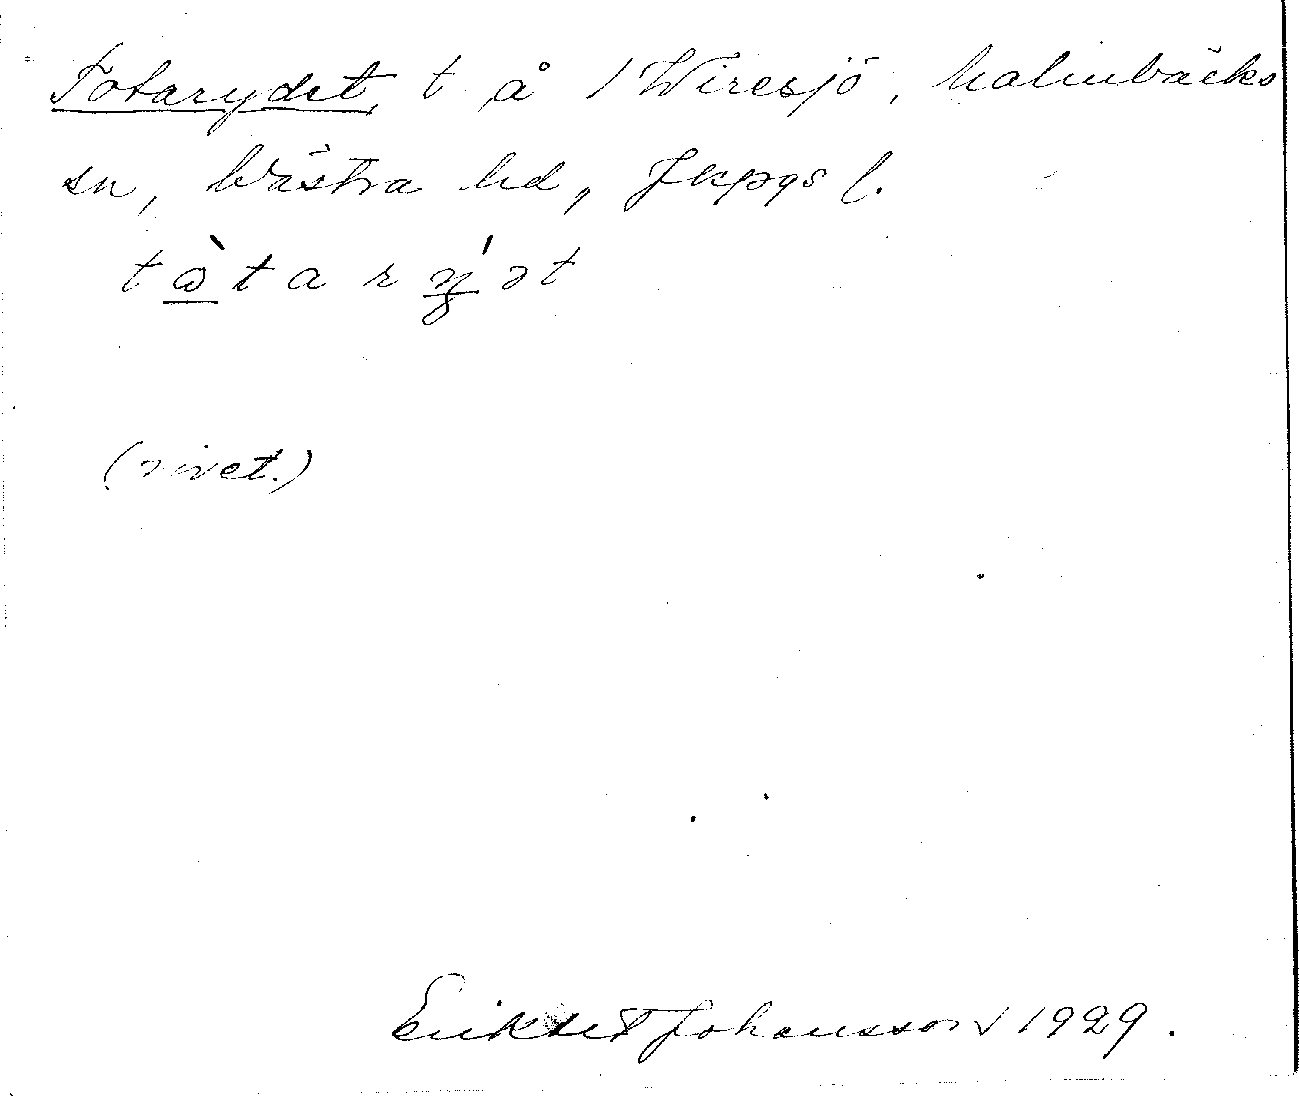 Totarydet, t å / Wiresjö, Malmbäcks
sn, Västra hd, Jkpgs l.
tὼtarý̱ət
(rivet.)
Johansson 1929.